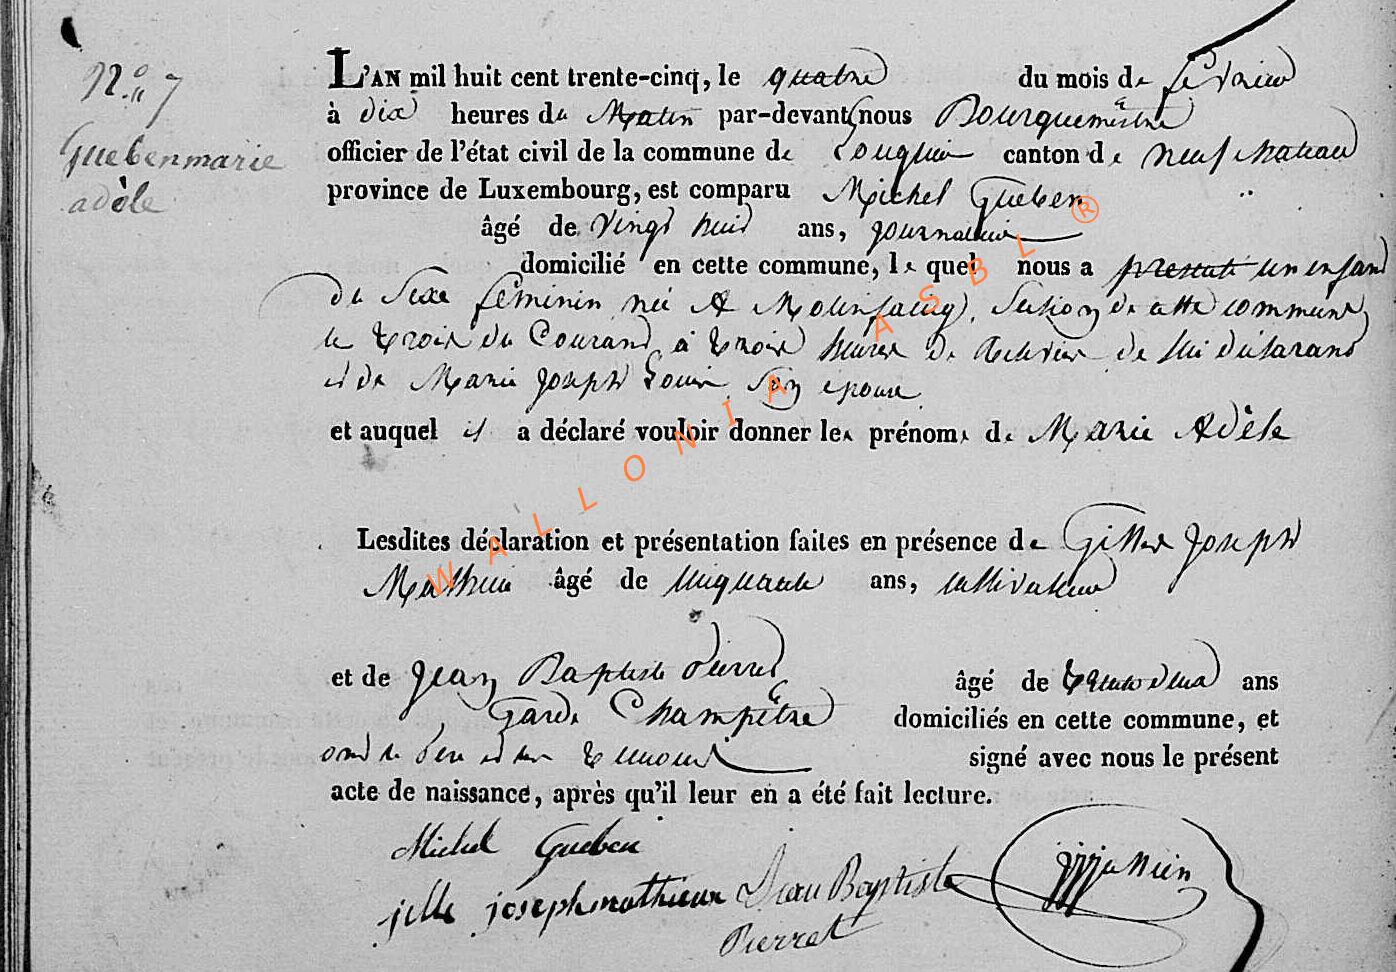 N.° 7
Gueben marie
adèle
L'AN mil huit cent trente-cinq, le quatre du mois de février
à dix heures du Matin par-devant nous Bourguemêstre
officier de l'état civil de la commune de canton de neufchateau
province de Luxembourg, est comparu Michel Gueben
âgé de Vingt huit ans, journalier
domicilié en cette commune, le quel nous a presenté un enfant
du Sexe féminin née A Molinfaing, Section de cette commune
le trois du Courant, à trois heures de de lui déclarant
et de Marie Joseph Louis Son épouse
et auquel il a déclaré vouloir donner les prénoms de Marie Adèle
Lesdites déclaration et présentation faites en présence de Gilles Joseph
Mathieu âgé de cinquante ans, cultivateur
et de Jean Baptiste Pierret âgé de trente deux ans
Garde Champêtre domiciliés en cette commune, et
ont le Père et les temoins signé avec nous le présent
acte de naissance, après qu'il leur en a été fait lecture.
Michel Gueben
jille joseph mathieux Jean Baptiste
Pierret
WALLONIA ASBL ®